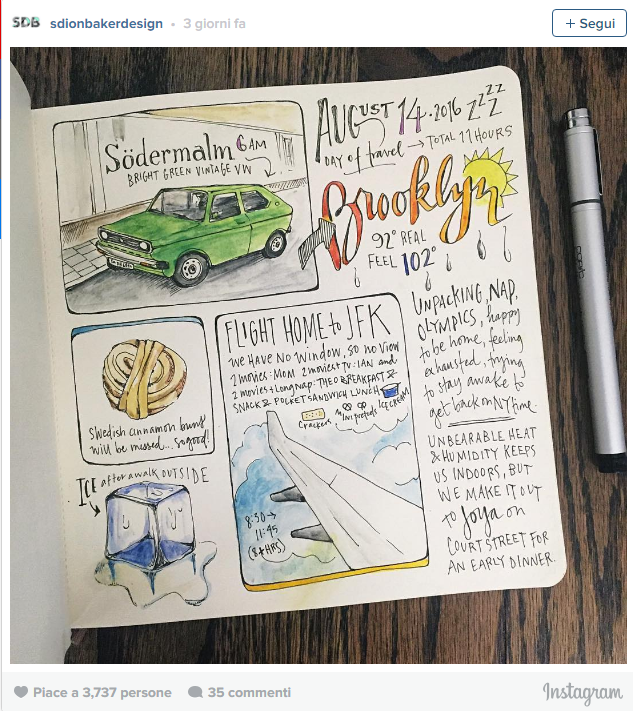 SDB sdionbakerdesign • 3 giorni fa
+ Segui
Södermalm 6AM
BRIGHT GREEN VINTAGE VW
AUGUST 14.2016 ZZZZZ
DAY of travel → TOTAL 11 HOURS
Brooklyn
92° REAL
FEEL 102°
Swedish cinnamon buns
will be missed... so good!
ICE after a walk OUTSIDE
FLIGHT HOME to JFK
WE HAVE NO WINDOW, SO NO VIEW
2 MOVIES: MOM 2 moviest TV: IAN and
2 movies + Long nap: THEO BREAKFAST &
SNACK & POCKET SANDWICH LUNCH &
Crackers mini pretzels ICE CREAM
8:30→
11:45
(8+HRS)
UNPACKING, NAP,
OLYMPICS, happy
to be home, feeling
exhausted, trying
to stay awake to
get back on NY time.
UNBEARABLE HEAT
& HUMIDITY KEEPS
US INDOORS, BUT
WE MAKE IT OUT
to Joya on
COURT STREET FOR
AN EARLY DINNER.
Piace a 3,737 persone 35 commenti
Instagram